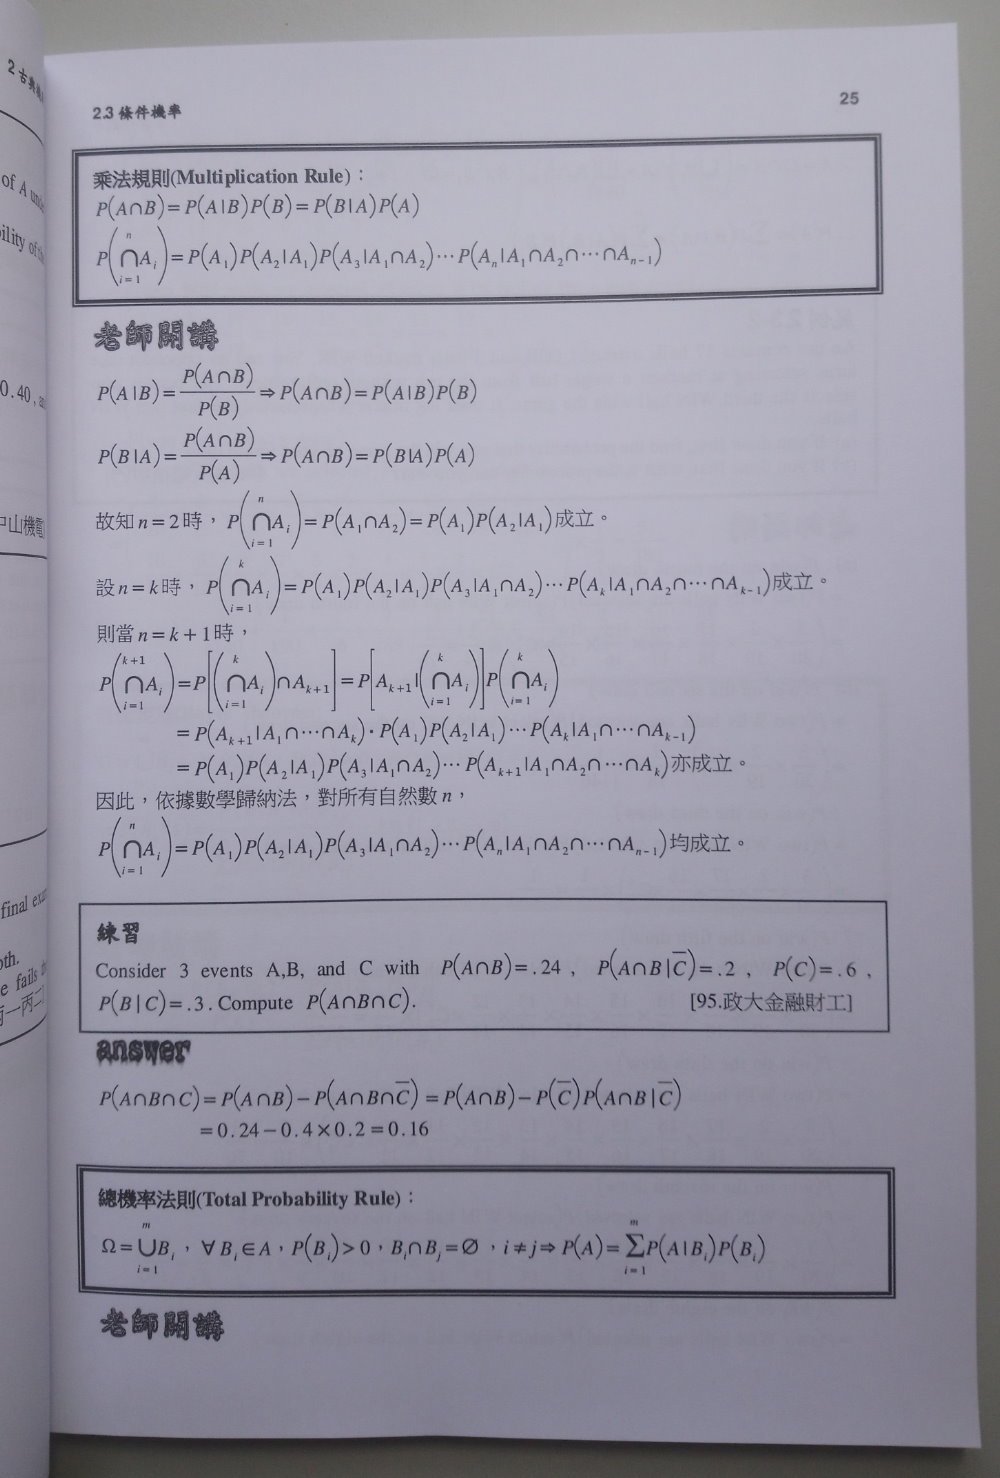 2 古典機
of A unde
bility of th
0.40, an
中山機電]
final exa
oth.
e fails th
丙一丙二]
2.3 條件機率
25
乘法規則(Multiplication Rule)：
P(A∩B)=P(A|B)P(B)=P(B|A)P(A)
P(⋂_{i=1}^{n} A_i)=P(A_1)P(A_2|A_1)P(A_3|A_1∩A_2)⋯P(A_n|A_1∩A_2∩⋯∩A_{n-1})
老師開講
P(A|B)=P(A∩B)/P(B)⇒P(A∩B)=P(A|B)P(B)
P(B|A)=P(A∩B)/P(A)⇒P(A∩B)=P(B|A)P(A)
故知n=2時，P(⋂_{i=1}^{n} A_i)=P(A_1∩A_2)=P(A_1)P(A_2|A_1)成立。
設n=k時，P(⋂_{i=1}^{k} A_i)=P(A_1)P(A_2|A_1)P(A_3|A_1∩A_2)⋯P(A_k|A_1∩A_2∩⋯∩A_{k-1})成立。
則當n=k+1時，
P(⋂_{i=1}^{k+1} A_i)=P[(⋂_{i=1}^{k} A_i)∩A_{k+1}]=P[A_{k+1}|(⋂_{i=1}^{k} A_i)]P(⋂_{i=1}^{k} A_i)
=P(A_{k+1}|A_1∩⋯∩A_k)·P(A_1)P(A_2|A_1)⋯P(A_k|A_1∩⋯∩A_{k-1})
=P(A_1)P(A_2|A_1)P(A_3|A_1∩A_2)⋯P(A_{k+1}|A_1∩A_2∩⋯∩A_k)亦成立。
因此，依據數學歸納法，對所有自然數n，
P(⋂_{i=1}^{n} A_i)=P(A_1)P(A_2|A_1)P(A_3|A_1∩A_2)⋯P(A_n|A_1∩A_2∩⋯∩A_{n-1})均成立。
練習
Consider 3 events A,B, and C with P(A∩B)=.24 , P(A∩B|C̅)=.2 , P(C)=.6 ,
P(B|C)=.3. Compute P(A∩B∩C). [95.政大金融財工]
answer
P(A∩B∩C)=P(A∩B)−P(A∩B∩C̅)=P(A∩B)−P(C̅)P(A∩B|C̅)
=0.24−0.4×0.2=0.16
總機率法則(Total Probability Rule)：
Ω=⋃_{i=1}^{m} B_i，∀B_i∈A，P(B_i)>0，B_i∩B_j=∅，i≠j⇒P(A)=∑_{i=1}^{m} P(A|B_i)P(B_i)
老師開講